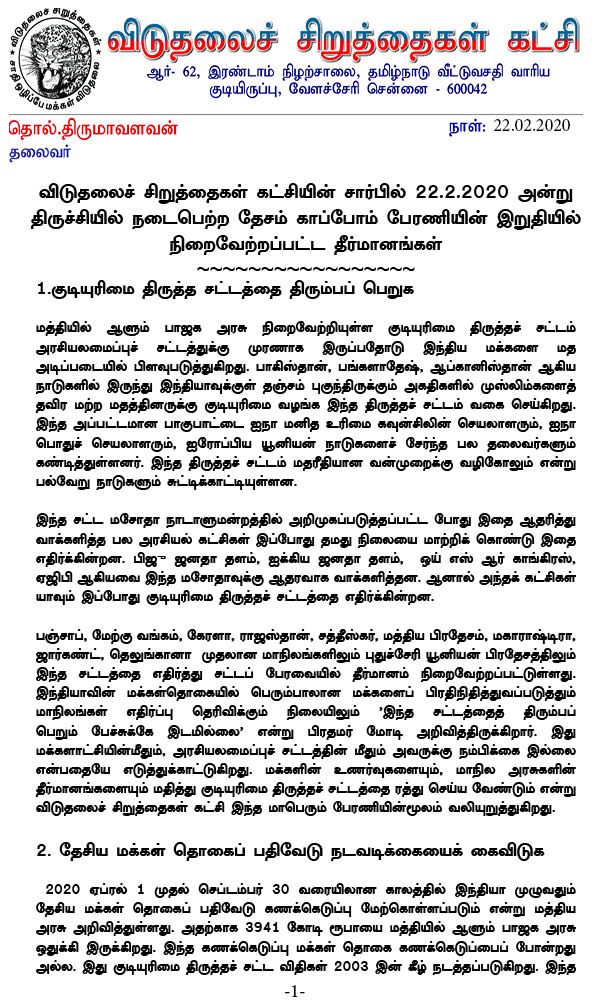 விடுதலைச் சிறுத்தைகள்
சாதி ஒழிப்பே மக்கள் விடுதலை
விடுதலைச் சிறுத்தைகள் கட்சி
ஆர்- 62, இரண்டாம் நிழற்சாலை, தமிழ்நாடு வீட்டுவசதி வாரிய
குடியிருப்பு, வேளச்சேரி சென்னை - 600042
தொல்.திருமாவளவன்
நாள்: 22.02.2020
தலைவர்
விடுதலைச் சிறுத்தைகள் கட்சியின் சார்பில் 22.2.2020 அன்று
திருச்சியில் நடைபெற்ற தேசம் காப்போம் பேரணியின் இறுதியில்
நிறைவேற்றப்பட்ட தீர்மானங்கள்
~~~~~~~~~~~~~~~~~
1.குடியுரிமை திருத்த சட்டத்தை திரும்பப் பெறுக
மத்தியில் ஆளும் பாஜக அரசு நிறைவேற்றியுள்ள குடியுரிமை திருத்தச் சட்டம்
அரசியலமைப்புச் சட்டத்துக்கு முரணாக இருப்பதோடு இந்திய மக்களை மத
அடிப்படையில் பிளவுபடுத்துகிறது. பாகிஸ்தான், பங்களாதேஷ், ஆப்கானிஸ்தான் ஆகிய
நாடுகளில் இருந்து இந்தியாவுக்குள் தஞ்சம் புகுந்திருக்கும் அகதிகளில் முஸ்லிம்களைத்
தவிர மற்ற மதத்தினருக்கு குடியுரிமை வழங்க இந்த திருத்தச் சட்டம் வகை செய்கிறது.
இந்த அப்பட்டமான பாகுபாட்டை ஐநா மனித உரிமை கவுன்சிலின் செயலாளரும், ஐநா
பொதுச் செயலாளரும், ஐரோப்பிய யூனியன் நாடுகளைச் சேர்ந்த பல தலைவர்களும்
கண்டித்துள்ளனர். இந்த திருத்தச் சட்டம் மதரீதியான வன்முறைக்கு வழிகோலும் என்று
பல்வேறு நாடுகளும் சுட்டிக்காட்டியுள்ளன.
இந்த சட்ட மசோதா நாடாளுமன்றத்தில் அறிமுகப்படுத்தப்பட்ட போது இதை ஆதரித்து
வாக்களித்த பல அரசியல் கட்சிகள் இப்போது தமது நிலையை மாற்றிக் கொண்டு இதை
எதிர்க்கின்றன. பிஜு ஜனதா தளம், ஐக்கிய ஜனதா தளம், ஒய் எஸ் ஆர் காங்கிரஸ்,
ஏஜிபி ஆகியவை இந்த மசோதாவுக்கு ஆதரவாக வாக்களித்தன. ஆனால் அந்தக் கட்சிகள்
யாவும் இப்போது குடியுரிமை திருத்தச் சட்டத்தை எதிர்க்கின்றன.
பஞ்சாப், மேற்கு வங்கம், கேரளா, ராஜஸ்தான், சத்தீஸ்கர், மத்திய பிரதேசம், மகாராஷ்டிரா,
ஜார்கண்ட், தெலுங்கானா முதலான மாநிலங்களிலும் புதுச்சேரி யூனியன் பிரதேசத்திலும்
இந்த சட்டத்தை எதிர்த்து சட்டப் பேரவையில் தீர்மானம் நிறைவேற்றப்பட்டுள்ளது.
இந்தியாவின் மக்கள்தொகையில் பெரும்பாலான மக்களைப் பிரதிநிதித்துவப்படுத்தும்
மாநிலங்கள் எதிர்ப்பு தெரிவிக்கும் நிலையிலும் 'இந்த சட்டத்தைத் திரும்பப்
பெறும் பேச்சுக்கே இடமில்லை' என்று பிரதமர் மோடி அறிவித்திருக்கிறார். இது
மக்களாட்சியின்மீதும், அரசியலமைப்புச் சட்டத்தின் மீதும் அவருக்கு நம்பிக்கை இல்லை
என்பதையே எடுத்துக்காட்டுகிறது. மக்களின் உணர்வுகளையும், மாநில அரசுகளின்
தீர்மானங்களையும் மதித்து குடியுரிமை திருத்தச் சட்டத்தை ரத்து செய்ய வேண்டும் என்று
விடுதலைச் சிறுத்தைகள் கட்சி இந்த மாபெரும் பேரணியின்மூலம் வலியுறுத்துகிறது.
2. தேசிய மக்கள் தொகைப் பதிவேடு நடவடிக்கையைக் கைவிடுக
2020 ஏப்ரல் 1 முதல் செப்டம்பர் 30 வரையிலான காலத்தில் இந்தியா முழுவதும்
தேசிய மக்கள் தொகைப் பதிவேடு கணக்கெடுப்பு மேற்கொள்ளப்படும் என்று மத்திய
அரசு அறிவித்துள்ளது. அதற்காக 3941 கோடி ரூபாயை மத்தியில் ஆளும் பாஜக அரசு
ஒதுக்கி இருக்கிறது. இந்த கணக்கெடுப்பு மக்கள் தொகை கணக்கெடுப்பைப் போன்றது
அல்ல. இது குடியுரிமை திருத்தச் சட்ட விதிகள் 2003 இன் கீழ் நடத்தப்படுகிறது. இந்த
-1-